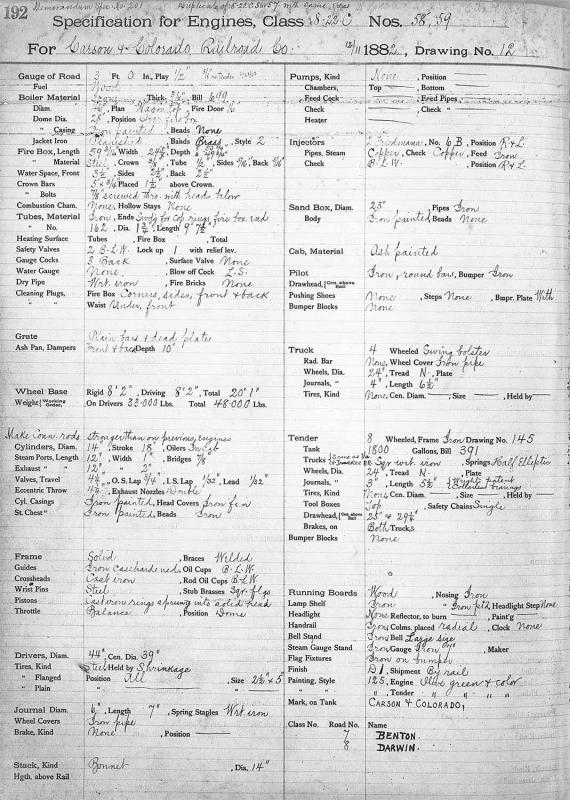 192
Memorandum Spec. No. 201 Duplicate of 8-22 C 56 & 57 with some
Specification for Engines, Class 8-22 C Nos. 58, 59
For Carson & Colorado Railroad Co. 12/11 1882, Drawing No. 12
Gauge of Road 3 Ft. 0 In., Play 1/2"
Fuel Wood
Boiler Material Bill 649
Diam. Plan Wagon top, Fire Door 16"
Dome Dia. Position Over fire box
" Casing Iron painted, Beads None
Jacket Iron Planished Bands Brass, Style 2
Fire Box, Length Width Depth
" Material Steel, Crown 3/8 Tube 1/2", Sides 5/16" Back 5/16"
Water Space, Front 3 1/2", Sides 2 1/2", Back 2 1/2"
Crown Bars Placed 1 1/2 above Crown.
" Bolts 7/8 screwed thro. with heads below
Combustion Cham. None, Hollow Stays None
Tubes, Material Iron, Ends Swdg. for cop. rings fire box end
" No. 162, Dia. 1 3/4", Length 9' 7 1/2"
Heating Surface Tubes , Fire Box , Total
Safety Valves 2 B.L.W. Lock up 1 with relief lev.
Gauge Cocks 3 Back, Surface Valve None
Water Gauge None, Blow off Cock L.S.
Dry Pipe Wrt. iron, Fire Bricks None
Cleaning Plugs, Fire Box Corners, sides, front & back
" Waist Under, front
Grate Plain bars & dead plate
Ash Pan, Dampers Front & back Depth 10"
Wheel Base Rigid 8' 2", Driving 8' 2", Total 20' 1"
Weight { Working Order, On Drivers 33,000 Lbs. Total 48,000 Lbs.
Make Conn. rods stronger than on previous engines
Cylinders, Diam. 14", Stroke 18", Oilers In cab
Steam Ports, Length 12", Width 1" Bridges 7/8"
Exhaust " 12" " 2"
Valves, Travel 4 1/2", O. S. Lap 3/4", I. S. Lap 1/32", Lead 1/32"
Eccentric Throw 4 1/2", Exhaust Nozzles Double
Cyl. Casings Iron painted, Head Covers Iron fin
St. Chest " Iron painted, Beads Iron
Frame Solid, Braces Welded
Guides Iron casehardened, Oil Cups B.L.W.
Crossheads Cast iron, Rod Oil Cups B.L.W.
Wrist Pins Steel, Stub Brasses Sqr. flgs
Pistons Cast iron rings sprung into solid head
Throttle Balance, Position Dome
Drivers, Diam. 44", Cen. Dia. 39"
Tires, Kind Steel Held by Shrinkage
" Flanged Position All , Size 2 1/2" x 5
" Plain " , "
Journal Diam. 6" Length 7" Spring Staples Wrt. iron
Wheel Covers Iron pipe
Brake, Kind None, Position
Stack, Kind Bonnet , Dia. 14"
Hgth. above Rail
Pumps, Kind None, Position
Chambers, Top Bottom
Feed Cock Feed Pipes
Check Check "
Heater
Injectors 2 Friedmann, No. 6 B, Position R. & L.
Pipes, Steam Copper, Check Copper, Feed Iron
Check B.L.W. Position R. & L.
Sand Box, Diam. 28", Pipes Iron
Body Iron painted Beads None
Cab, Material Ash painted
Pilot Iron, round bars, Bumper Iron
Drawhead, { Cen. above Rail
Pushing Shoes None, Steps None, Bmpr. Plate With
Bumper Blocks None
Truck 4 Wheeled Swing bolster
Rad. Bar None, Wheel Cover Iron pipe
Wheels, Dia. 24", Tread N., Plate
Journals, " 4", Length 6 1/2"
Tires, Kind None, Cen. Diam. , Size , Held by
Tender 8 Wheeled, Frame Iron, Drawing No. 145
Tank 1800 Gallons, Bill 391
Trucks Sqr. wrt. iron, Springs Half Elliptic
Wheels, Dia. 24", Tread N., Plate
Journals, " 3" Length 5 1/2"
Tires, Kind None Cen. Diam. , Size , Held by
Tool Boxes Top, Safety Chains Single
Drawhead, { Cen. above Rail 25" & 29 1/2"
Brakes, on Both Trucks
Bumper Blocks None
Running Boards Wood, Nosing Iron
Lamp Shelf Iron, " Iron ptd, Headlight Step None
Headlight None Reflector, to burn , Paint'g
Handrail Iron, Colms, placed radial, Clock None
Bell Stand Iron Bell Large size
Steam Gauge Stand Iron Gauge Iron, Maker
Flag Fixtures Iron on bumper
Finish D 1, Shipment By rail
Painting, Style 125, Engine Olive green & color
" " , Tender " " " "
Mark, on Tank CARSON & COLORADO,
Class No. Road No. Name
7 BENTON.
8 DARWIN.